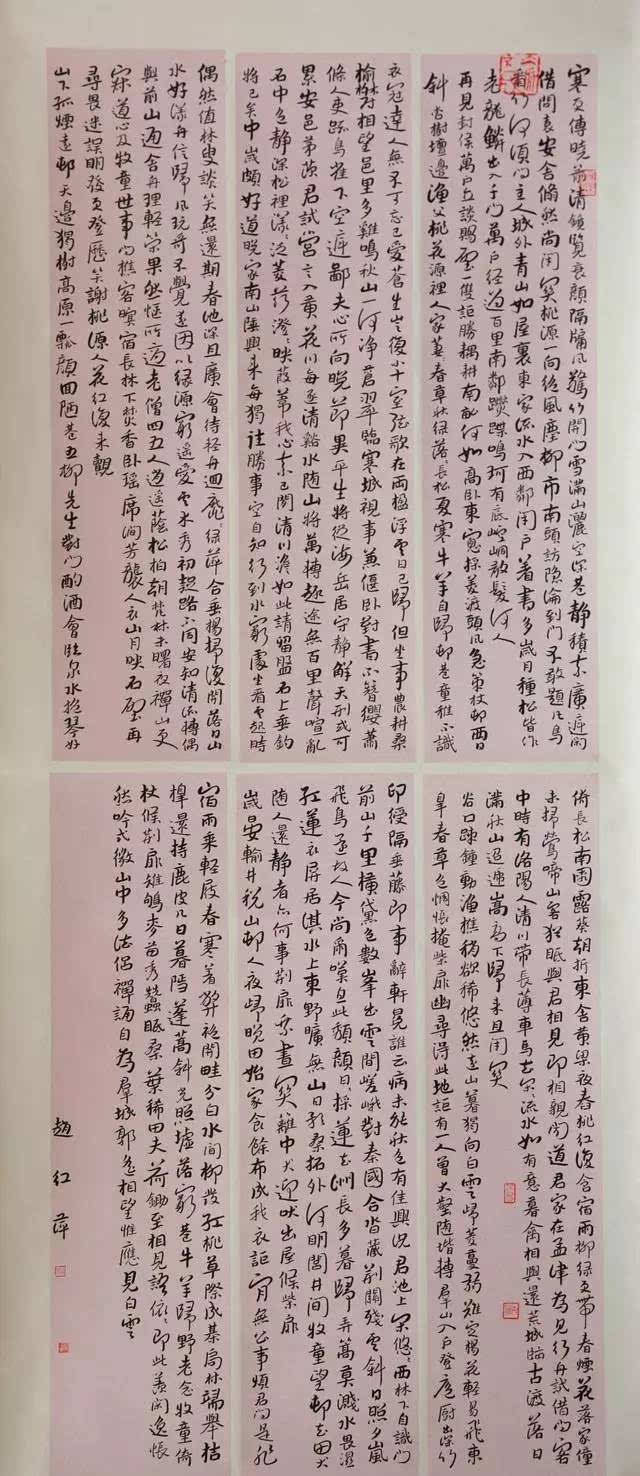 寒更傳曉箭清鏡覽衰顏隔牖風驚竹開門雪滿山灑空深巷靜積素廣庭閒
借問袁安舍翛然尚閉關桃源一向絕風塵柳市南頭訪隱淪到門不敢題凡鳥
看竹何須問主人城外青山如屋裏東家流水入西鄰閉戶著書多歲月種松皆作
老龍鱗出入千門萬戶經過百里南鄰蹀躞鳴珂有底崆峒散髮何人
再見封侯萬戶立談賜璧一雙詎勝耦耕南畝何如高臥東窗採菱渡頭風急策杖邨西日
斜杏樹壇邊漁父桃花源裡人家萋々春草秋綠落々長松夏寒牛羊自歸邨巷童稚不識
衣冠達人無不可忘己愛蒼生豈復小十室弦歌在兩楹浮雲日已歸但坐事農耕桑
榆鬱相望邑里多雞鳴秋山一何淨蒼翠臨寒城視事兼偃臥對書不簪纓蕭
條人吏疏鳥雀下空庭鄙夫心所向晚節異平生將從海岳居守靜解天刑或可
累安邑茅茨君試營言入黃花川每逐清谿水隨山將萬轉趣途無百里聲喧亂
石中色靜深松裡漾々泛菱荇澄々映葭葦我心素已閒清川澹如此請留盤石上垂釣
將已矣中歲頗好道晚家南山陲興來每獨往勝事空自知行到水窮處坐看雲起時
偶然值林叟談笑無還期春池深且廣會待輕舟迴靡々綠萍合垂楊掃復開落日山
水好漾舟信歸風玩奇不覺遠因以緣源窮遙愛雲木秀初疑路不同安知清流轉偶
與前山通舍舟理輕策果然愜所適老僧四五人逍遙蔭松柏朝梵林未曙夜禪山更
寂道心及牧童世事問樵客暝宿長林下焚香臥瑤席澗芳襲人衣山月映石壁再
尋畏迷誤明發更登歷笑謝桃源人花紅復來覿
山下孤煙遠邨天邊獨樹高原一瓢顏回陋巷五柳先生對門酌酒會臨泉水抱琴好
倚長松南園露葵朝折東舍黃粱夜舂桃紅復含宿雨柳綠更帶春煙花落家僮
未掃鶯啼山客猶眠與君相見即相親聞道君家在孟津為見行舟試借問客
中時有洛陽人清川帶長薄車馬去閑々流水如有意暮禽相與還荒城臨古渡落日
滿秋山迢遞嵩高下歸來且閉關
谷口疏鐘動漁樵稍欲稀悠然遠山暮獨向白雲歸菱蔓弱難定楊花輕易飛東
皋春草色惆悵掩柴扉幽尋得此地詎有一人曾大壑隨階轉群山入戶登庖廚出深竹
印綬隔垂藤即事辭軒冕誰云病未能秋色有佳興況君池上閑悠々西林下自識門
前山千里橫黛色數峯出雲間嵯峨對秦國合沓藏荊關殘雲斜日照夕嵐
飛鳥還故人今尚爾嘆息此頹顏日々採蓮去洲長多暮歸弄篙莫濺水畏濕
紅蓮衣屏居淇水上東野曠無山日隱桑柘外河明閭井間牧童望邨去田犬
隨人還靜者亦何事荊扉乘晝關雞中犬迎吠出屋候柴扉
歲晏輸井稅山邨人夜歸晚田始家食餘布成我衣詎肯無公事煩君問是非
宿雨乘輕屐春寒著弊袍開畦分白水間柳發紅桃草際成棊局林端舉桔
槔還持鹿皮几日暮隱蓬蒿斜光照墟落窮巷牛羊歸野老念牧童倚
杖候荊扉雉雊麥苗秀蠶眠桑葉稀田夫荷鋤至相見語依々即此羨閒逸悵
然吟式微山中多法侶禪誦自為群城郭遙相望惟應見白雲
趙紅萍